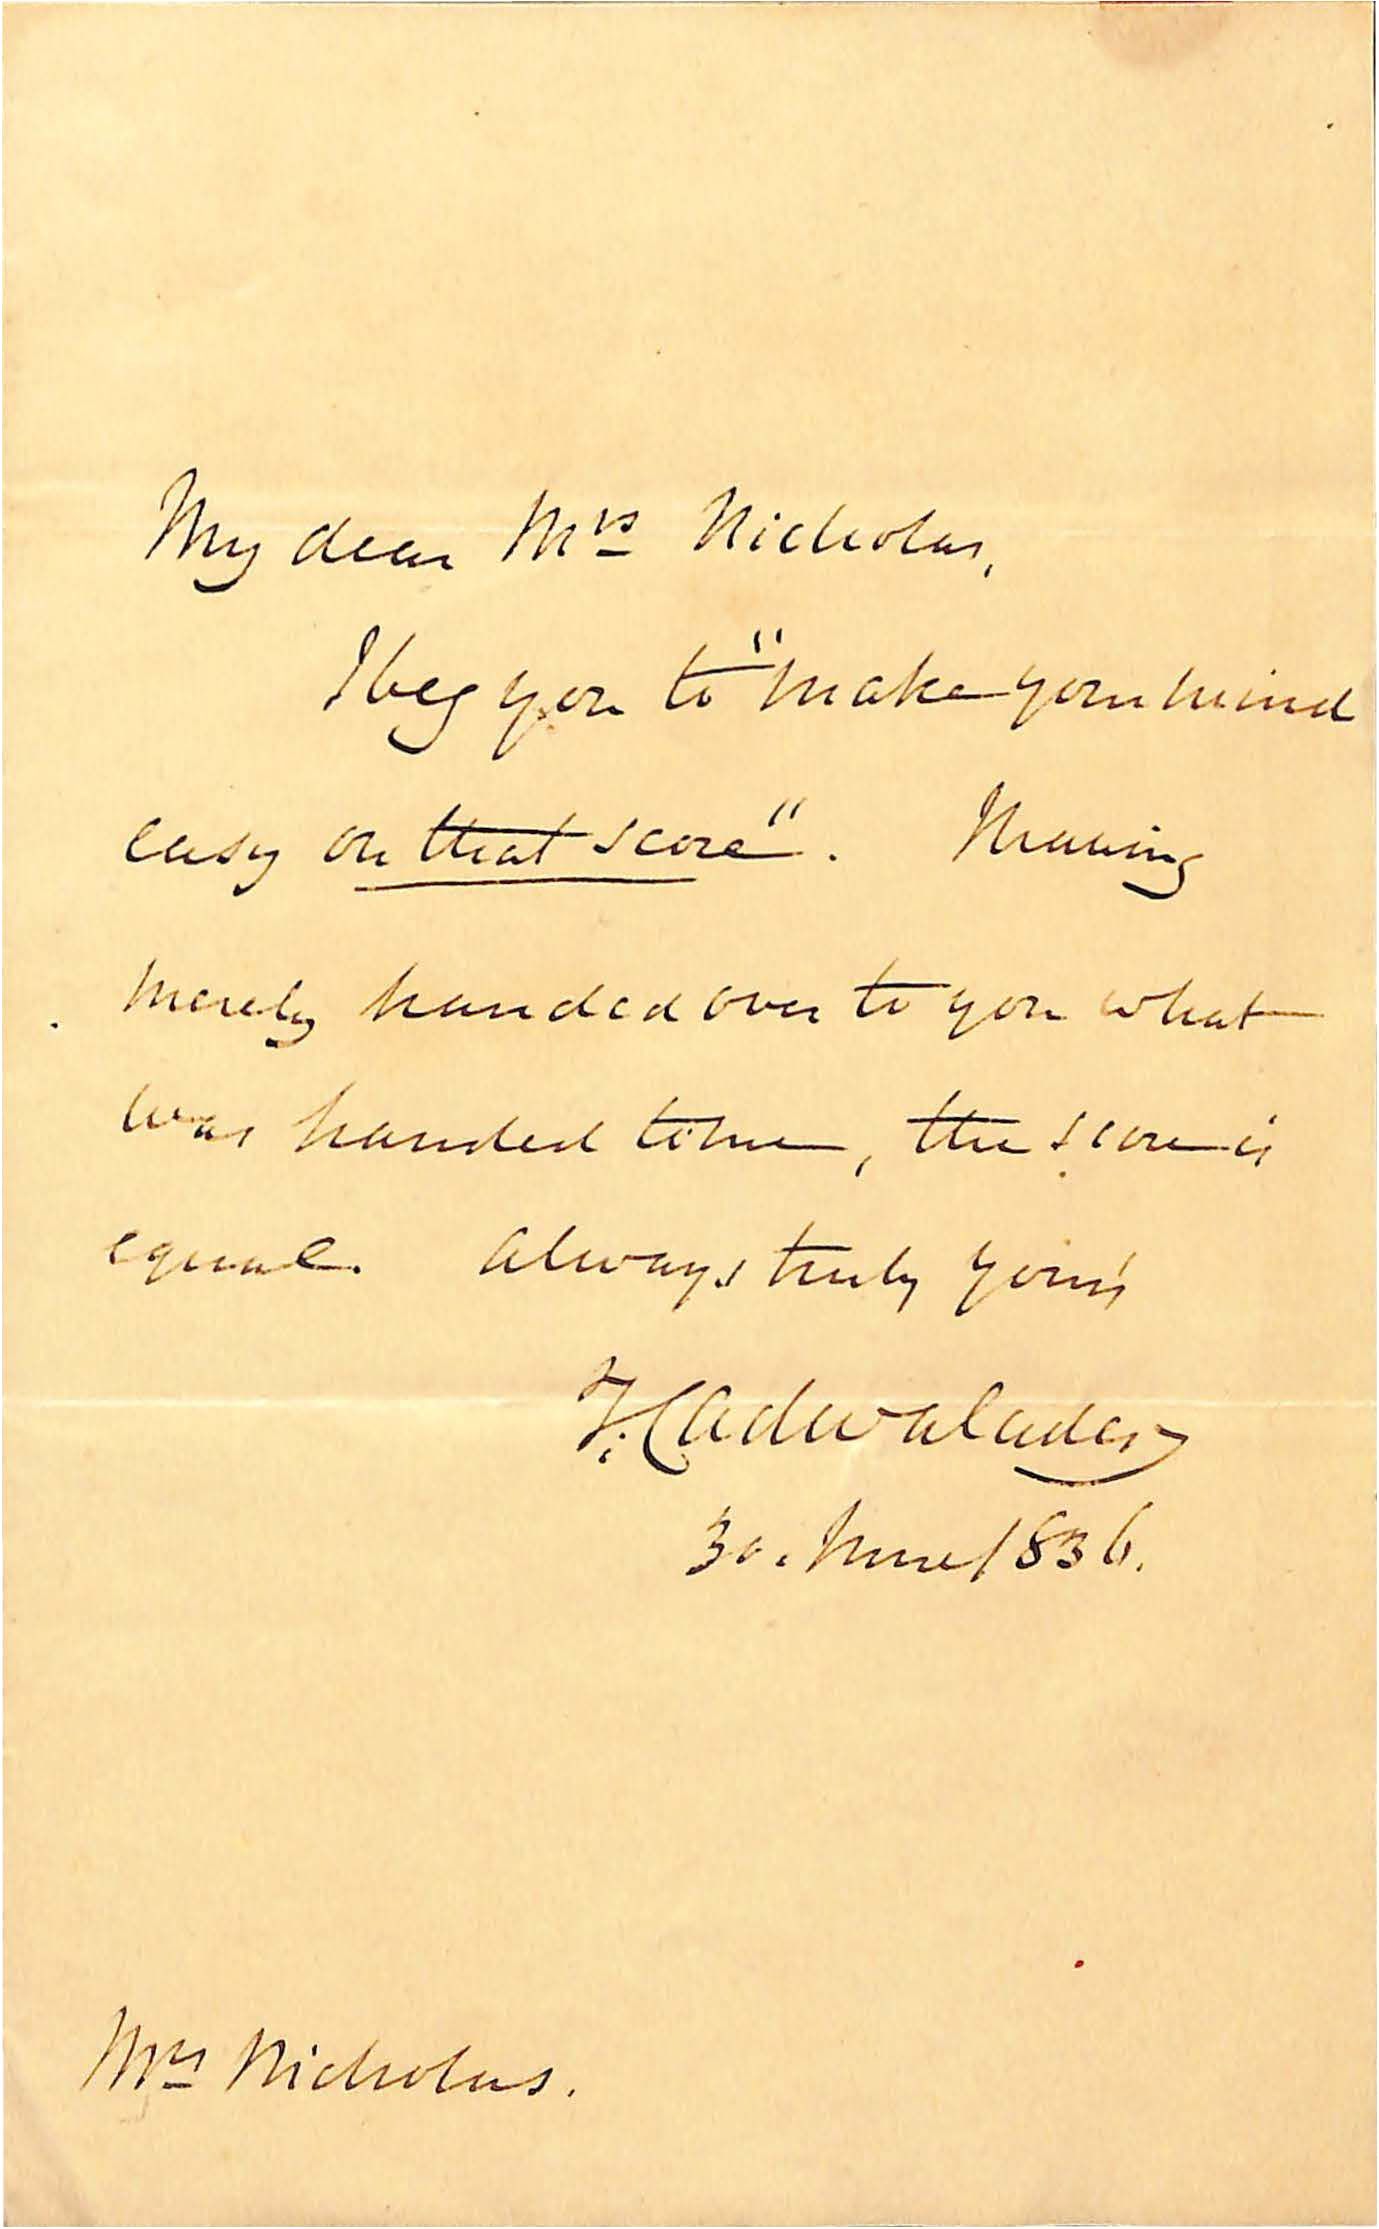 My dear Mrs Nicholas,
I beg you to "make your mind
easy on that score". Having
merely handed over to you what
was handed to me, the score is
equal. Always truly yours
T. Cadwalader
30. June 1836.
Mrs Nicholas.